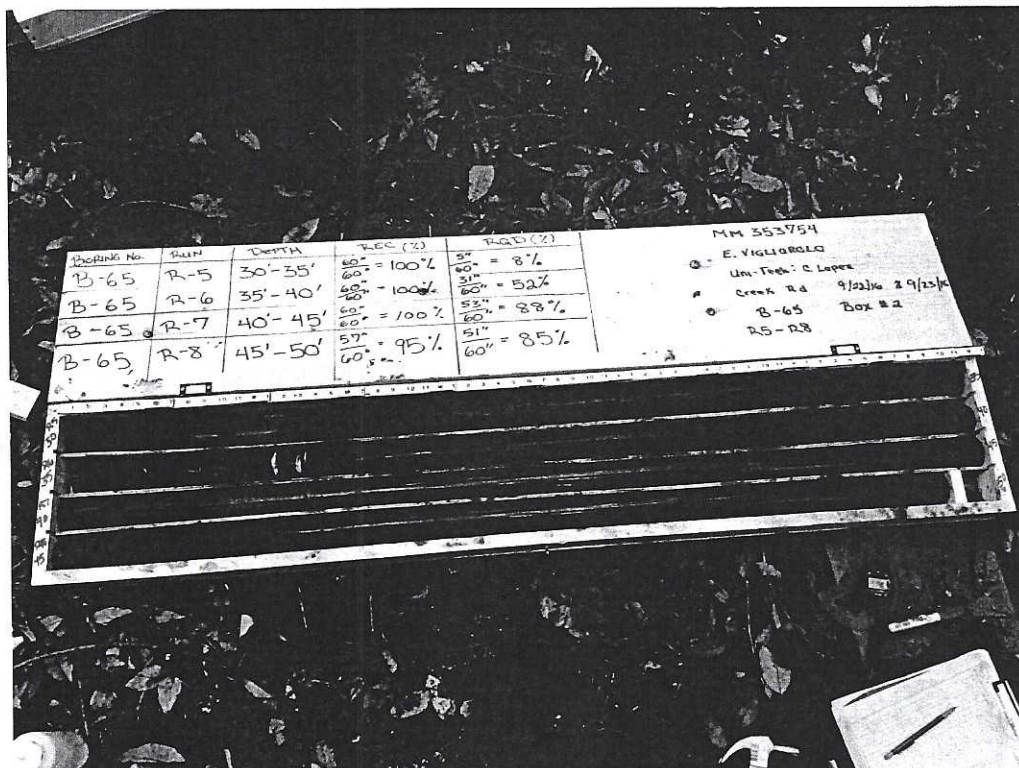 BORING NO. RUN DEPTH REC (%) RQD (%)
B-65 R-5 30'-35' 60"/60" = 100% 5"/60" = 8%
B-65 R-6 35'-40' 60"/60" = 100% 31"/60" = 52%
B-65 R-7 40'-45' 60"/60" = 100% 53"/60" = 88%
B-65 R-8 45'-50' 57"/60" = 95% 51"/60" = 85%
MM 353754
E. VIGLIAROLO
Uni-Tech: C. Lopez
Creek Rd 9/22/16 & 9/23/16
B-65 Box #2
R5-R8